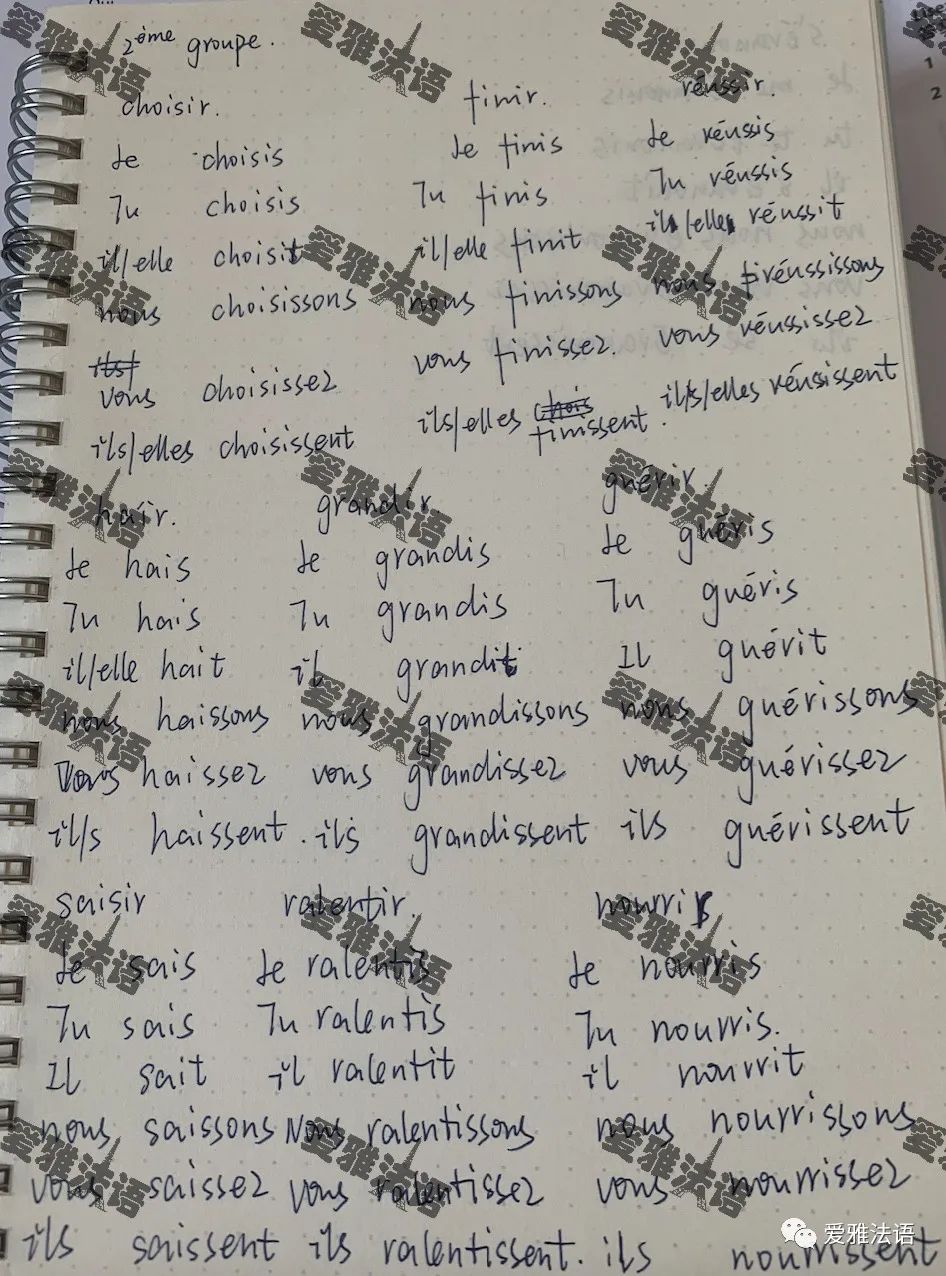 2ème groupe.
choisir. finir. réussir.
Je choisis Je finis Je réussis
Tu choisis Tu finis Tu réussis
il/elle choisit il/elle finit il/elle réussit
nous choisissons nous finissons nous firéussissons
vous choisissez vous finissez. vous réussissez
ils/elles choisissent ils/elles finissent. ils/elles réussissent
haïr. grandir. guérir.
Je hais Je grandis Je guéris
Tu hais Tu grandis Tu guéris
il/elle hait il grandit Il guérit
nous haissons nous grandissons nous guérissons
vous haissez vous grandissez vous guérissez
ils haissent. ils grandissent ils guérissent
saisir ralentir. nourrir
Je sais Je ralentis Je nourris
Tu sais Tu ralentis Tu nourris.
Il sait il ralentit il nourrit
nous saissons Nous ralentissons nous nourrissons
vous saissez vous ralentissez vous nourrissez
ils saissent ils ralentissent. ils nourrissent
爱雅法语
爱雅法语